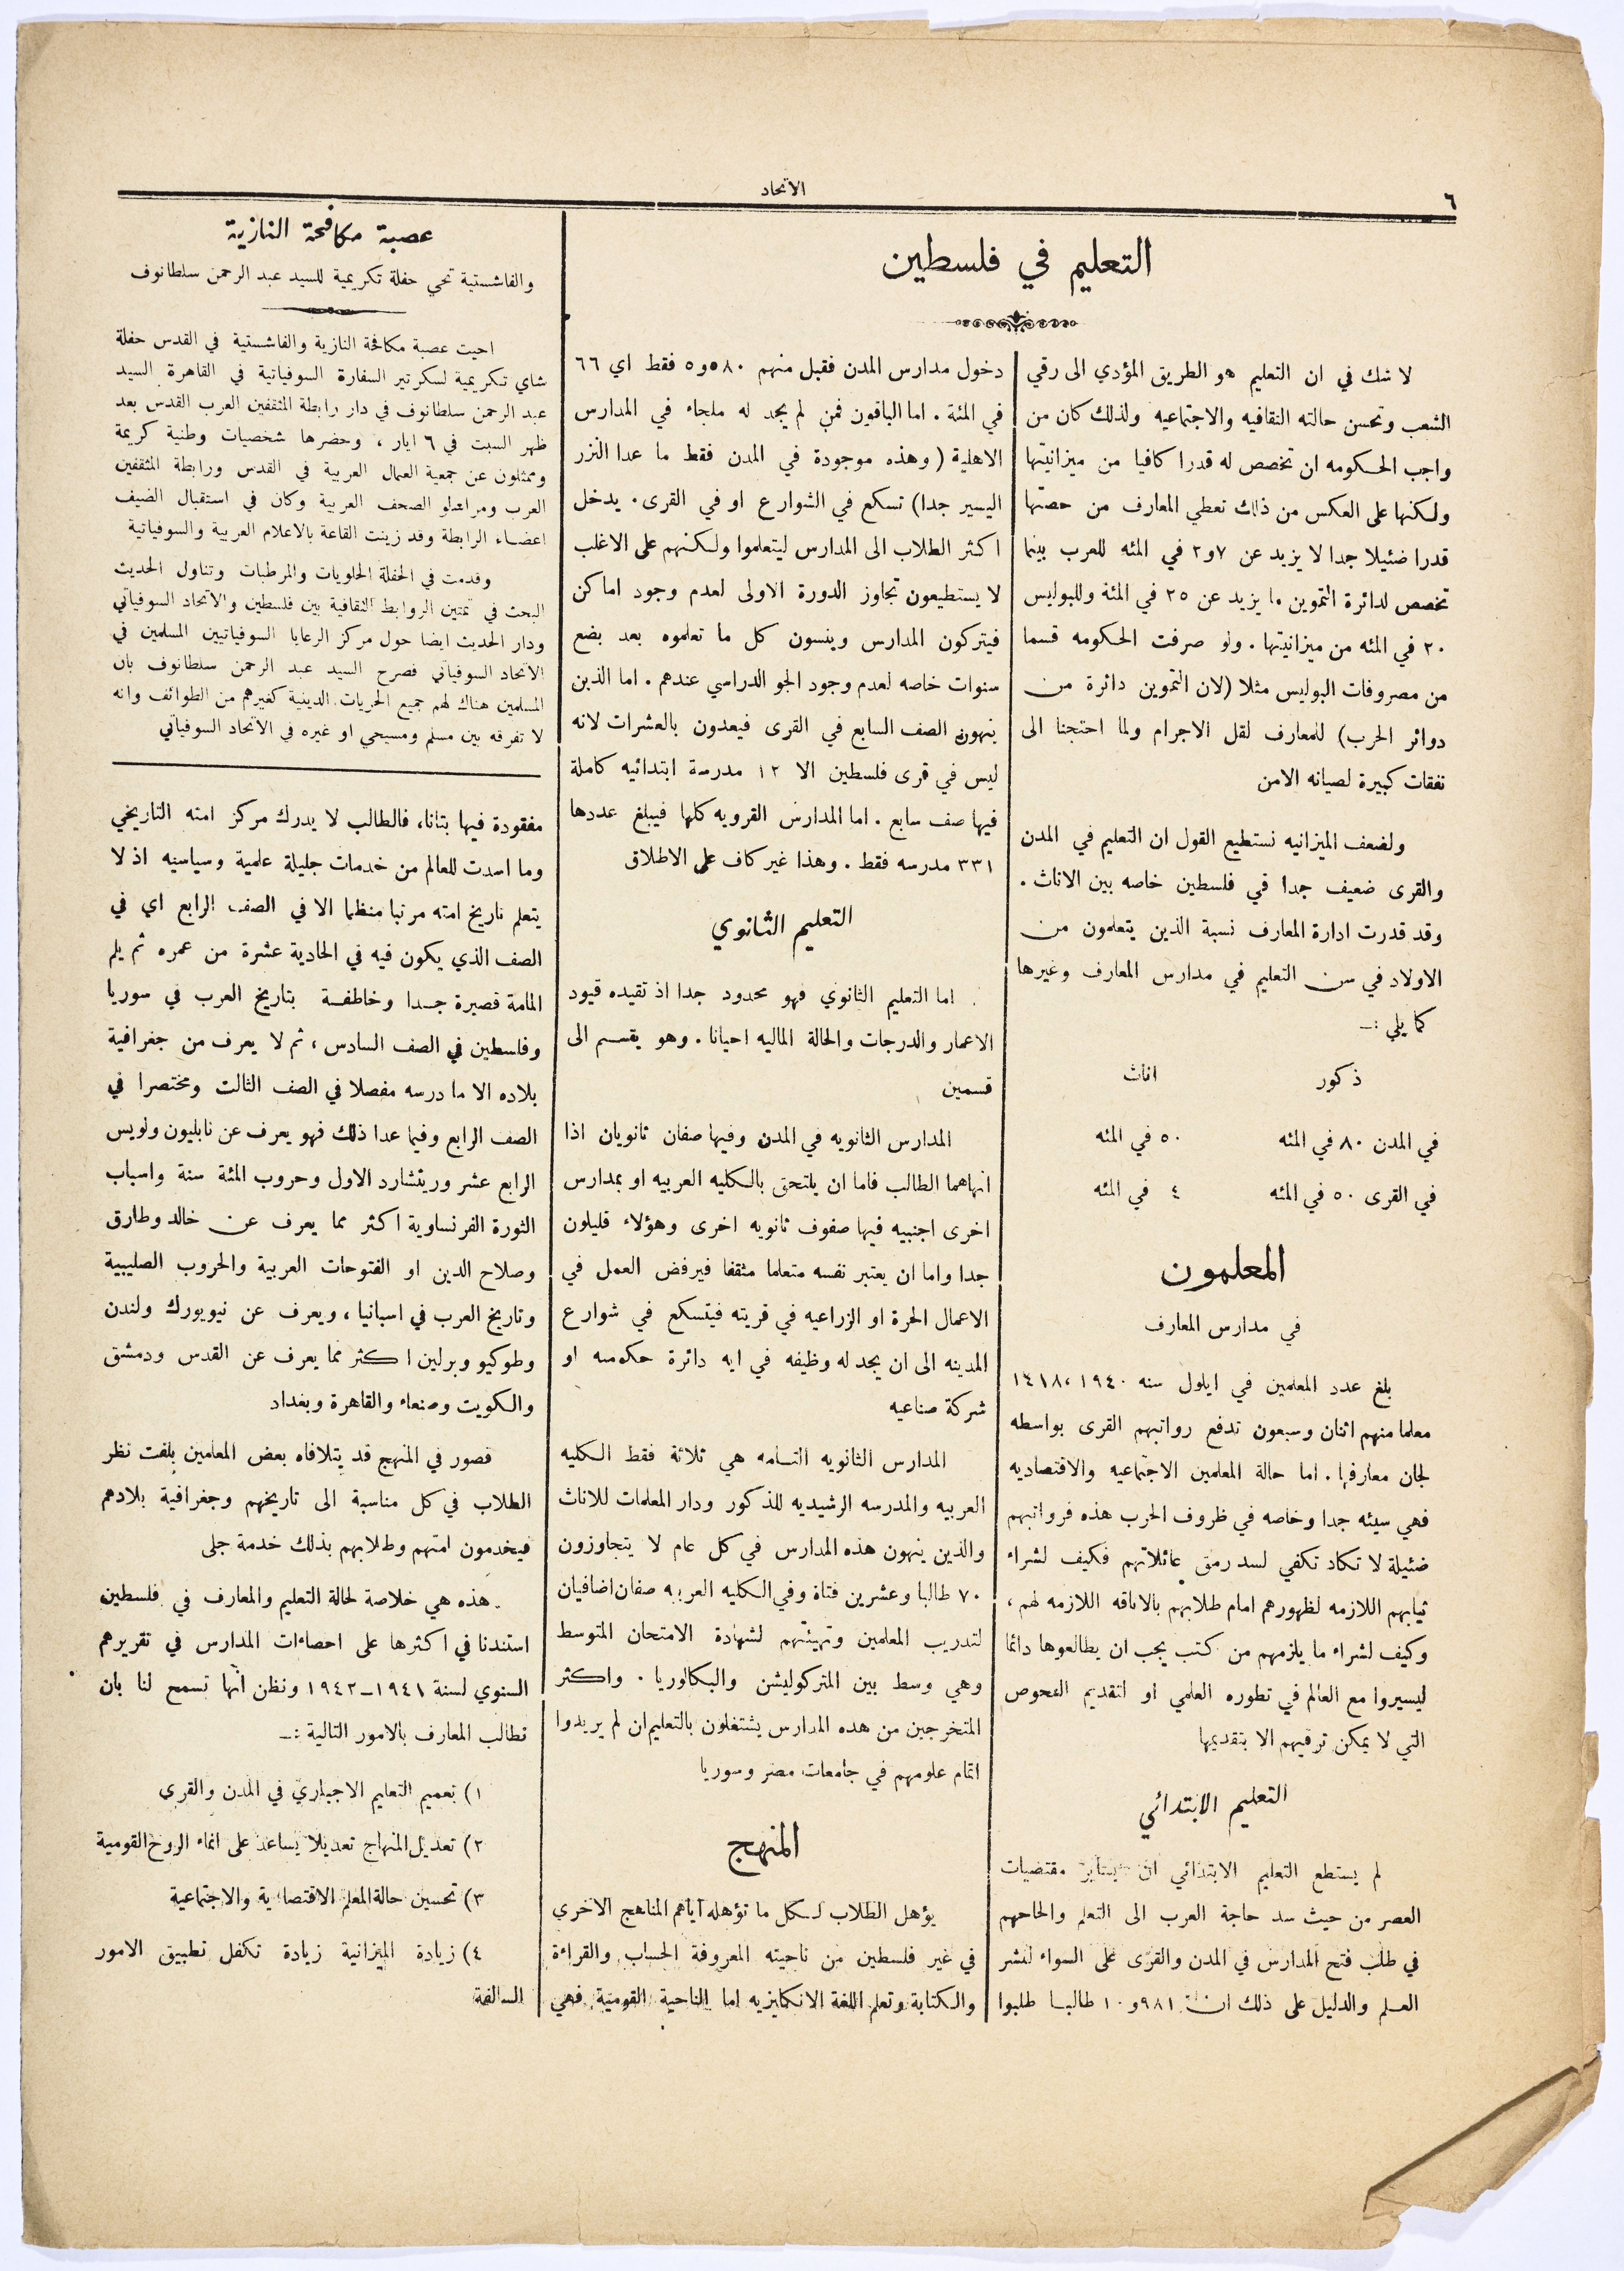 ٦
الاتحاد
التعليم في فلسطين
لا شك في ان التعليم هو الطريق المؤدي الى رقي
الشعب وتحسن حالته الثقافيه والاجتماعيه ولذلك كان من
واجب الحكومه ان تخصص له قدرا كافيا من ميزانيتها
ولكنها على العكس من ذلك تعطي المعارف من حصتها
قدرا ضئيلا جدا لا يزيد عن ٧و٢ في المئه للعرب بينما
تخصص لدائرة التموين ما يزيد عن ٢٥ في المئة وللبوليس
٢٠ في المئه من ميزانيتها . ولو صرفت الحكومه قسما
من مصروفات البوليس مثلا (لان التموين دائرة من
دوائر الحرب) للمعارف لقل الاجرام ولما احتجنا الى
نفقات كبيرة لصيانه الامن
ولضعف الميزانيه نستطيع القول ان التعليم في المدن
والقرى ضعيف جدا في فلسطين خاصه بين الاناث .
وقد قدرت ادارة المعارف نسبة الذين يتعلمون من
الاولاد في سن التعليم في مدارس المعارف وغيرها
كما يلي :ـ
ذكور اناث
في المدن ٨٠ في المئه ٥٠ في المئه
في القرى ٥٠ في المئه ٤ في المئه
المعلمون
في مدارس المعارف
بلغ عدد المعلمين في ايلول سنه ١٩٤٠، ١٤١٨
معلما منهم اثنان وسبعون تدفع رواتبهم القرى بواسطه
لجان معارفها . اما حالة المعلمين الاجتماعيه والاقتصاديه
فهي سيئه جدا وخاصه في ظروف الحرب هذه فرواتبهم
ضئيلة لا تكاد تكفي لسد رمق عائلاتهم فكيف لشراء
ثيابهم اللازمه لظهورهم امام طلابهم بالاناقه اللازمه لهم ،
وكيف لشراء ما يلزمهم من كتب يجب ان يطالعوها دائما
ليسيروا مع العالم في تطوره العلمي او لتقديم الفحوص
التي لا يمكن ترفيهم الا بتقديمها
التعليم الابتدائي
لم يستطع التعليم الابتدائي ان يساير مقتضيات
العصر من حيث سد حاجة العرب الى التعلم والحاحهم
في طلب فتح المدارس في المدن والقرى على السواء لنشر
العلم والدليل على ذلك ان ٩٨١و١٠ طالبا طلبوا
دخول مدارس المدن فقبل منهم ٥٨٠و٥ فقط اي ٦٦
في المئة . اما الباقون فمن لم يجد له ملجاء في المدارس
الاهلية ( وهذه موجودة في المدن فقط ما عدا النزر
اليسير جدا) تسكع في الشوارع او في القرى . يدخل
اكثر الطلاب الى المدارس ليتعلموا ولكنهم على الاغلب
لا يستطيعون تجاوز الدورة الاولى لعدم وجود اماكن
فيتركون المدارس وينسون كل ما تعلموه بعد بضع
سنوات خاصه لعدم وجود الجو الدراسي عندهم . اما الذين
ينهون الصف السابع في القرى فيعدون بالعشرات لانه
ليس في قرى فلسطين الا ١٢ مدرسة ابتدائيه كاملة
فيها صف سابع . اما المدارس القرويه كلها فيبلغ عددها
٣٣١ مدرسه فقط . وهذا غير كاف على الاطلاق
التعليم الثانوي
اما التعليم الثانوي فهو محدود جدا اذ تقيده قيود
الاعمار والدرجات والحالة الماليه احيانا . وهو يقسم الى
قسمين
المدارس الثانويه في المدن وفيها صفان ثانويان اذا
انهاهما الطالب فاما ان يلتحق بالكليه العربيه او بمدارس
اخرى اجنبيه فيها صفوف ثانويه اخرى وهؤلاء قليلون
جدا واما ان يعتبر نفسه متعلما مثقفا فيرفض العمل في
الاعمال الحرة او الزراعيه في قريته فيتسكع في شوارع
المدينه الى ان يجد له وظيفه في ايه دائرة حكوميه او
شركة صناعيه
المدارس الثانويه التامه هي ثلاثة فقط الكليه
العربيه والمدرسه الرشيديه للذكور ودار المعلمات للاناث
والذين ينهون هذه المدارس في كل عام لا يتجاوزون
٧٠ طالبا وعشرين فتاة وفي الكليه العربيه صفان اضافيان
لتدريب المعلمين وتهيئتهم لشهادة الامتحان المتوسط
وهي وسط بين المتركوليشن والبكالوريا . واكثر
المتخرجين من هذه المدارس يشتغلون بالتعليم ان لم يريدوا
اتمام علومهم في جامعات مصر وسوريا
المنهج
يؤهل الطلاب لكل ما تؤهله اياهم المناهج الاخرى
في غير فلسطين من ناحيته المعروفة الحساب والقراءة
والكتابة وتعلم اللغة الانكليزيه اما الناحية القومية فهي
عصبة مكافحة النازية
والفاشستية تحي حفلة تكريمية للسيد عبد الرحمن سلطانوف
احيت عصبة مكافحة النازية والفاشستية في القدس حفلة
شاي تكريمية لسكرتير السفارة السوفياتية في القاهرة السيد
عبد الرحمن سلطانوف في دار رابطة المثقفين العرب القدس بعد
ظهر السبت في ٦ ايار ، وحضرها شخصيات وطنية كريمة
وممثلون عن جمعية العمال العربية في القدس ورابطة المثقفين
العرب ومراسلو الصحف العربية وكان في استقبال الضيف
اعضاء الرابطة وقد زينت القاعة بالاعلام العربية والسوفياتية
وقدمت في الحفلة الحلويات والمرطبات وتناول الحديث
البحث في تمتين الروابط الثقافية بين فلسطين والاتحاد السوفياتي
ودار الحديث ايضا حول مركز الرعايا السوفياتيين المسلمين في
الاتحاد السوفياتي فصرح السيد عبد الرحمن سلطانوف بان
المسلمين هناك لهم جميع الحريات الدينية كغيرهم من الطوائف وانه
لا تفرقه بين مسلم ومسيحي او غيره في الاتحاد السوفياتي
مفقودة فيها بتاتا، فالطالب لا يدرك مركز امته التاريخي
وما اسدت للعالم من خدمات جليلة علمية وسياسيه اذ لا
يتعلم تاريخ امته مرتبا منظما الا في الصف الرابع اي في
الصف الذي يكون فيه في الحادية عشرة من عمره ثم يلم
المامة قصيرة جدا وخاطفة بتاريخ العرب في سوريا
وفلسطين في الصف السادس ، ثم لا يعرف من جغرافية
بلاده الا ما درسه مفصلا في الصف الثالث ومختصرا في
الصف الرابع وفيما عدا ذلك فهو يعرف عن نابليون ولويس
الرابع عشر وريتشارد الاول وحروب المئة سنة واسباب
الثورة الفرنساوية اكثر مما يعرف عن خالد وطارق
وصلاح الدين او الفتوحات العربية والحروب الصليبية
وتاريخ العرب في اسبانيا ، ويعرف عن نيويورك ولندن
وطوكيو وبرلين اكثر مما يعرف عن القدس ودمشق
والكويت وصنعاء والقاهرة وبغداد
قصور في المنهج قد يتلافاه بعض المعلمين بلفت نظر
الطلاب في كل مناسبة الى تاريخهم وجغرافية بلادهم
فيخدمون امتهم وطلابهم بذلك خدمة جلى
هذه هي خلاصة لحالة التعليم والمعارف في فلسطين
استندنا في اكثرها على احصاءات المدارس في تقريرهم
السنوي لسنة ١٩٤١ـ١٩٤٢ ونظن انها تسمح لنا بان
نطالب المعارف بالامور التالية :ـ
١) تعميم التعليم الاجباري في المدن والقرى
٢) تعديل المنهاج تعديلا يساعد على انماء الروح القومية
٣) تحسين حالة المعلم الاقتصادية والاجتماعية
٤) زيادة الميزانية زيادة تكفل تطبيق الامور
السالفة